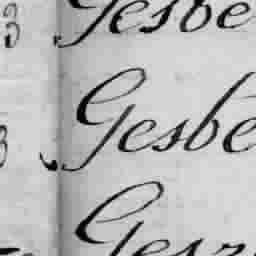 3 Gesbe
Gesbe
Ges